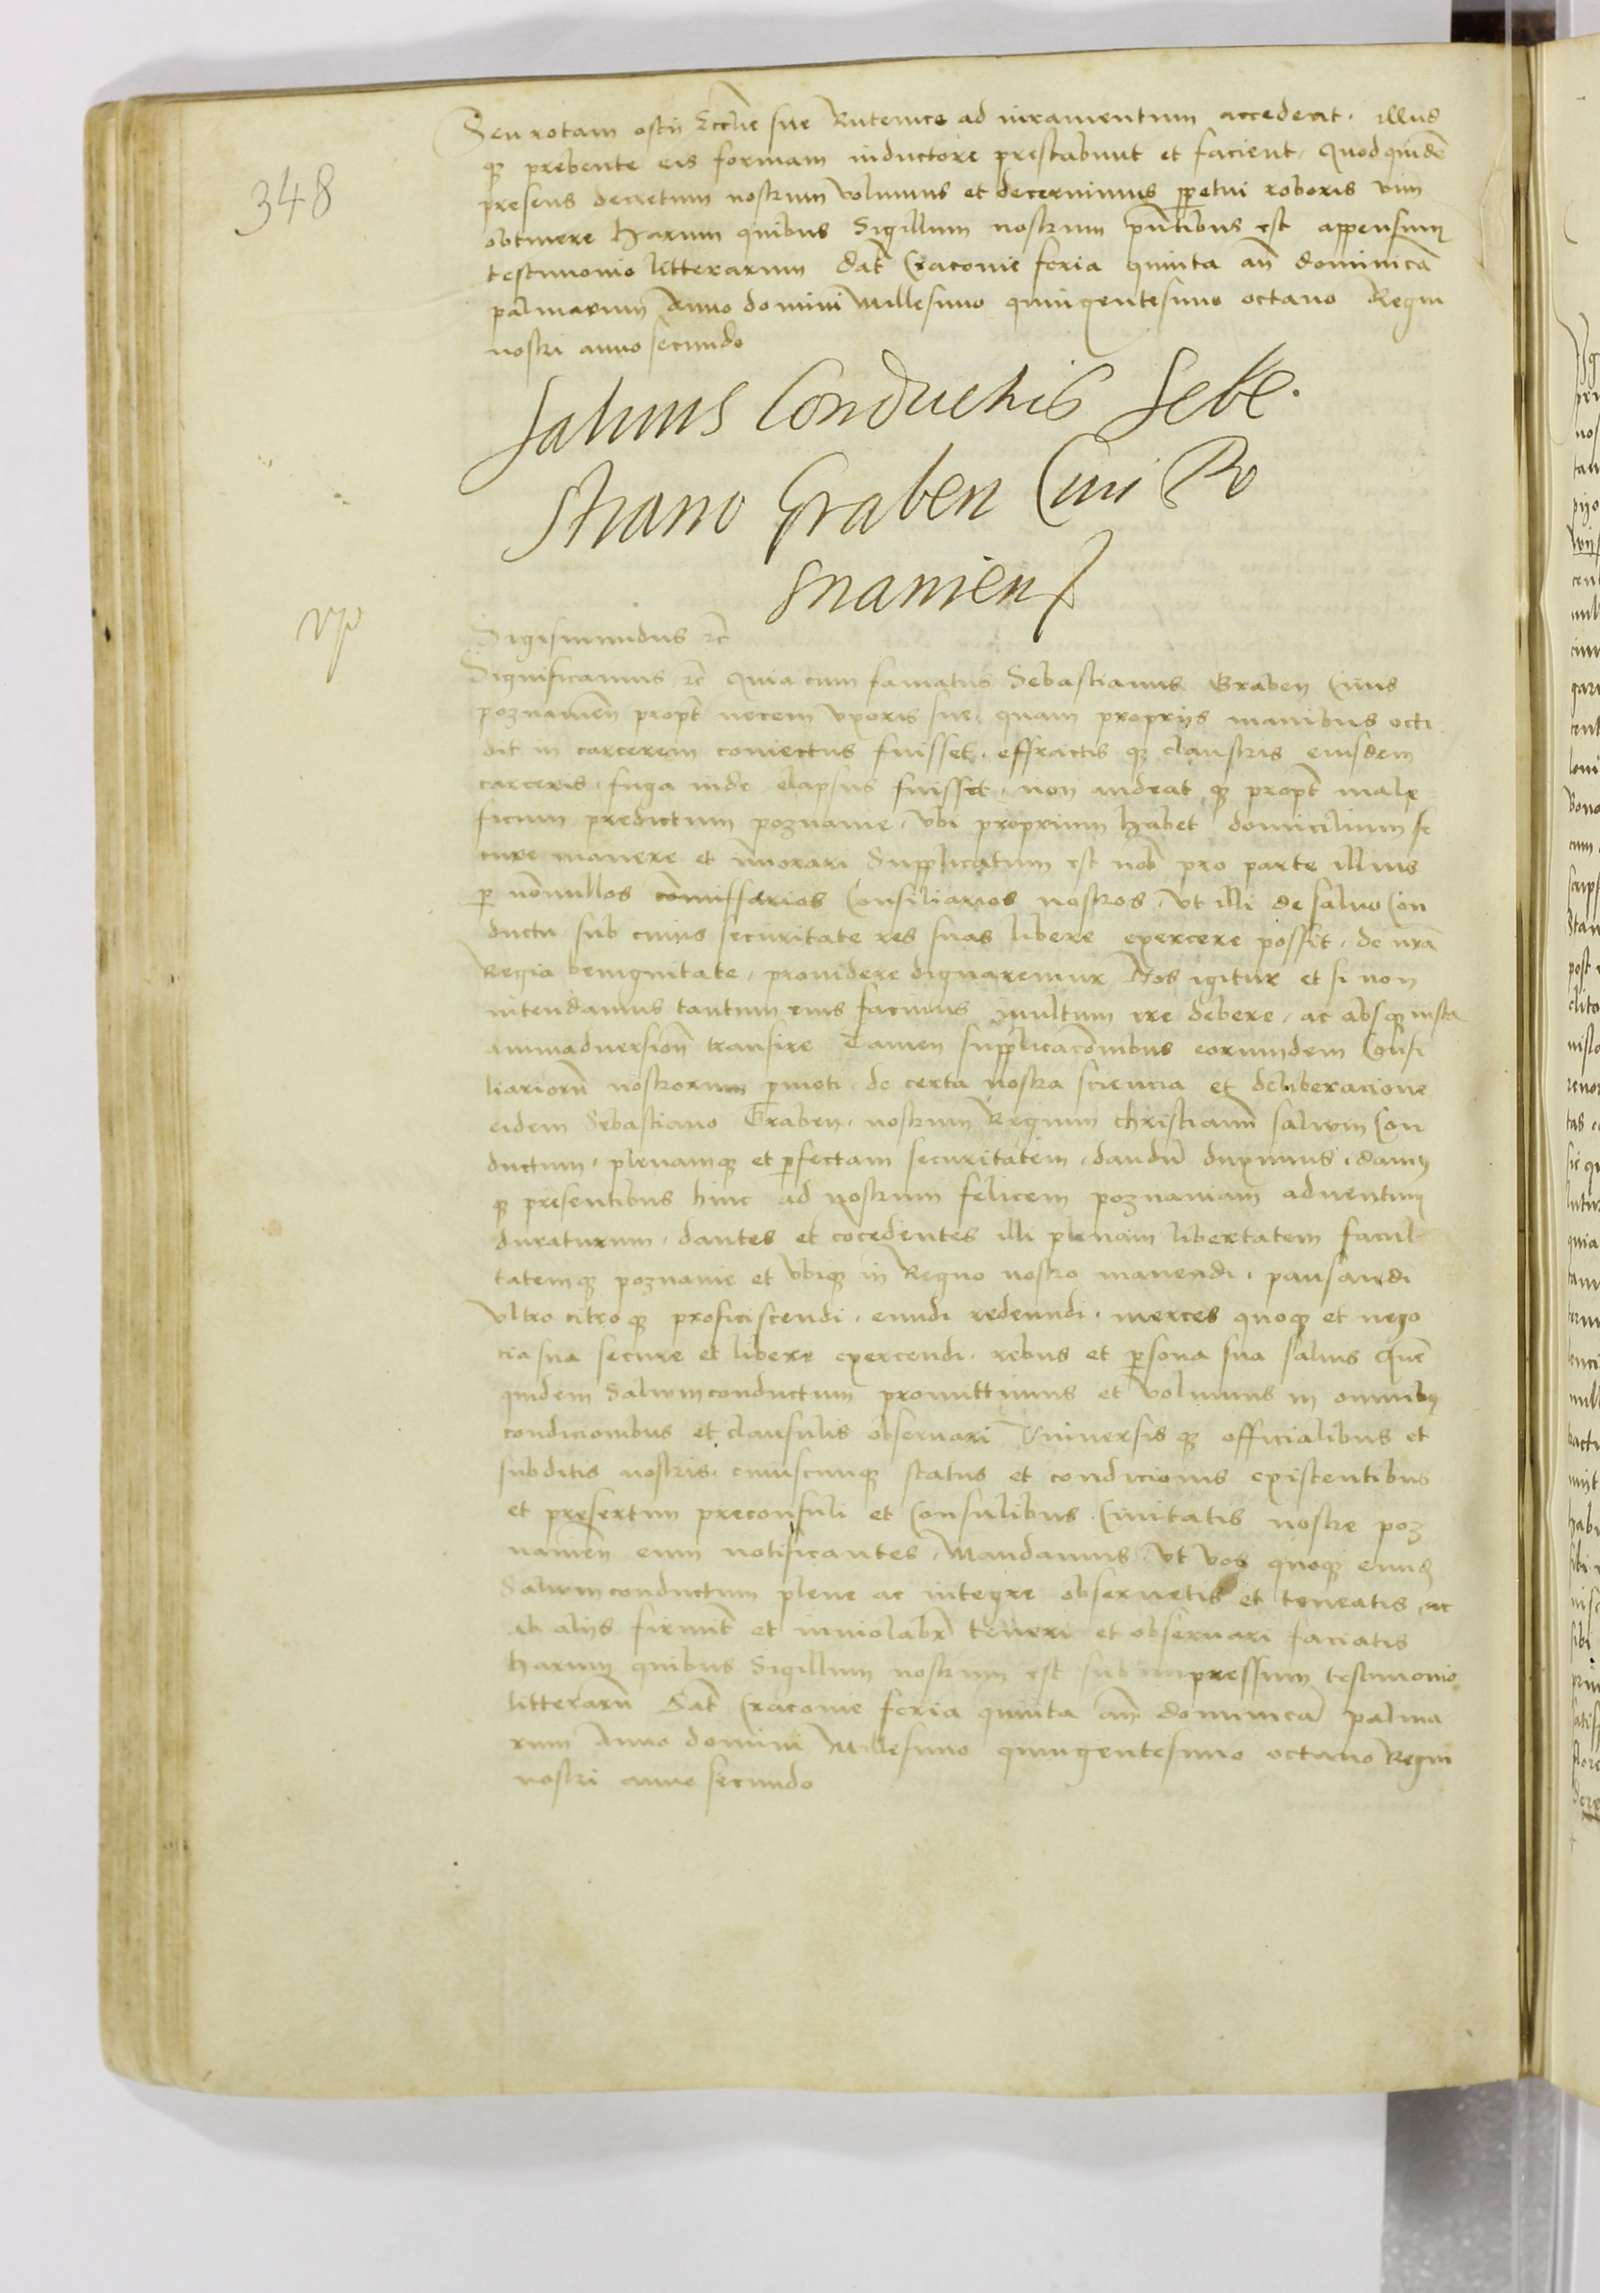 Seu rotam ostii Ecclie sue Rutenice ad iuramentum accederet . illud
q3 prebente eis formam inductore prestabunt et facient . Quodquidē
presens decretum nostrum volumus et decernimus ppetui roboris vim
obtinere Harum quibus Sigillum nostrum pntibus est appensum
testimonio litterarum Dat Cracovie feria quinta an dominicā
palmarum Anno domini Millesimo quingentesimo octavo Regni
nostri anno secundo
348
Salvus Conductus Seba.
stiano Graben Civi Po
snanien
vp
Sigismundus rc
Significamus rc Quia cum famatus Sebastianus Graben Civis
poznanien propt necem vxoris sue . quam proprijs manibus occi
dit in carcerem coniectus fuisset . effractis q3 claustris eiusdem
carceris . fuga inde elapsus fuisset . non audeat q3 propt male
ficium predictum poznanie . vbi proprium habet domicilium se
cure manere et imorari Supplicatum est nob pro parte illius
p nonnullos comissarios Consiliarios nostros . vt illi de salvo Con
ductu sub cuius securitate res suas libere exercere possit . de nra
Regia benignitate . providere dignaremur Nos igitur et si non
intendamus tantum eius facinus inultum ire debere . ac absq3 iusta
animadversion transire Tamen supplicacōnibus eorumdem Consi
liariorū nostrorum pmoti . de certa nostra sciencia et deliberacione
eidem Sebastiano Graben . nostrum Regium christianū salvum Con
ductum . plenamq3 et pfectam securitatem . dandū duximus . damus
q3 presentibus hinc ad nostrum felicem poznaniam adventum
duraturum . dantes et cocedentes illi plenam libertatem facul
tatemq3 poznanie et vbiq3 in Regno nostro manendi . pausandi
vltro citro q3 proficiscendi . eundi redeundi . merces quoq3 et nego
cia sua secure et libere exercendi . rebus et psona sua salvis Quē
quidem Salvumconductum promittimus et volumus in omnibus
condicionibus et clausulis observari Universis q3 officialibus et
subditis nostris . cuiuscunq3 status et condicionis existentibus
et presertim preconsuli et Consulibus . Civitatis nostre poz
nanien eum notificantes . Mandamus vt vos quoq3 eund
Salvumconductum plene ac integre observetis et teneatis , ac
ab alijs firmit et inviolabr teneri et observari faciatis
harum quibus Sigillum nostrum est subimpressum testimonio
litterarū Dat Cracovie feria quinta an dominicā palma
rum Anno domini Millesimo quingentesimo octavo Regni
nostri anno secundo